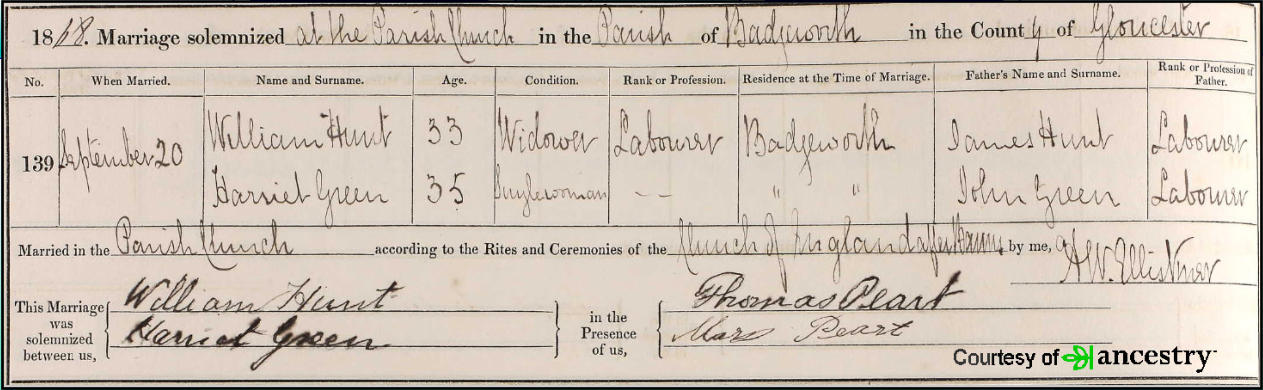 1868. Marriage solemnized at the Parish Church in the Parish of Badgworth in the County of Gloucester
No. When Married. Name and Surname. Age. Condition. Rank or Profession. Residence at the Time of Marriage. Father's Name and Surname. Rank or Profession of Father.
139 September 20 William Hunt 33 Widower Labourer Badgeworth James Hunt Labourer
Harriet Green 35 Singlewoman — " " John Green Labourer
Married in the Parish Church according to the Rites and Ceremonies of the Church of England after Banns by me,
This Marriage was solemnized between us, William Hunt in the Presence of us, Thomas Peart
Harriet Green Mary Peart
Courtesy of ancestry